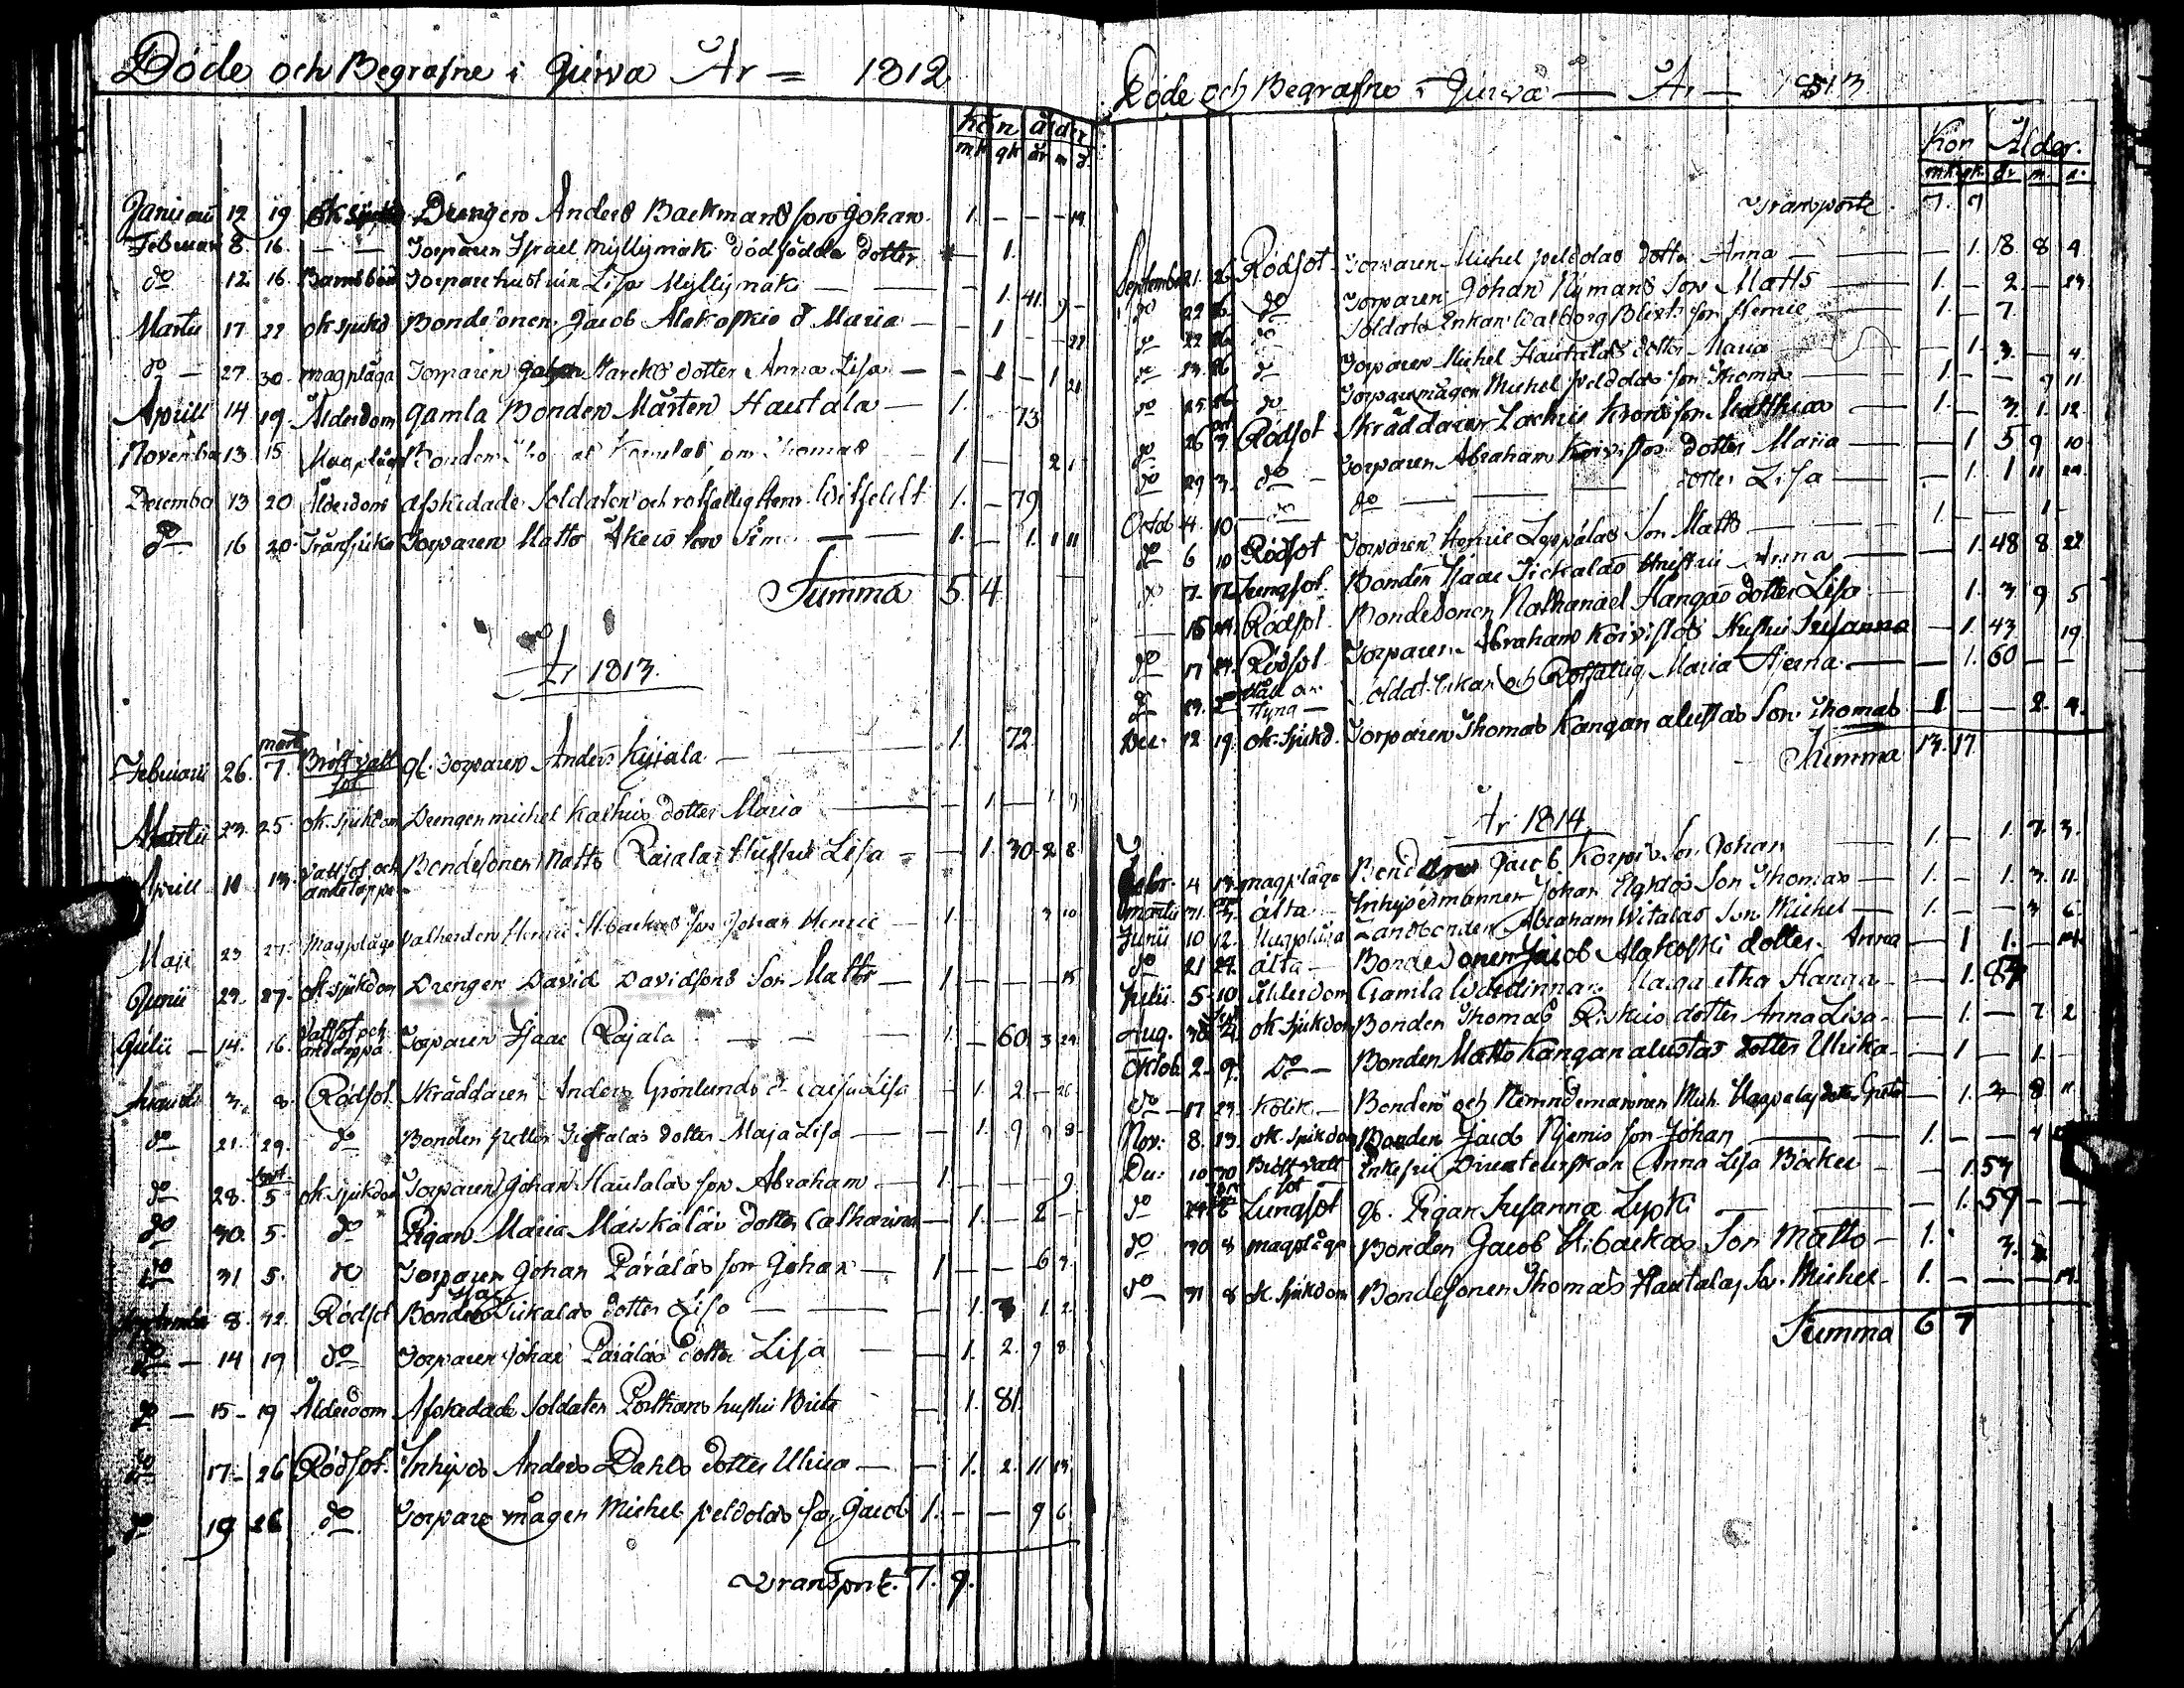 Döde och Begrafne i Jurva År = 1812
Kön ålder
mk qk år m d
Januarii 12 19 ok sjukd Drengen Anders Backmans son Johan 1. - - - 14
Februari 8. 16. - - Torparen Israel Myllymäki dödfödda dotter - 1.
do 12. 16. Barnsbörd Torpare hustrun Lisa Myllymäki - 1. 41. 9 -
Martii 17 22 ok sjukd Bondesonen Jacob Alakoskis d Maria - 1 - - 22
do - 27. 30. magplåga Torparen Johan Marcks dotter Anna Lisa - - 1 - 1 21
Aprill 14 19. Ålderdom gamla Bonden Mårten Hautala - 1. 73
November 13 15 Magplåga Bonden Thomas son Thomas 1. - 2 1
December 13 20. Ålderdom afskedade Soldaten och rotfattig Henr. Witfelt 1. - 79
do 16 20. Tränsjuka Torparen Matts Åkers son Sim 1. - 1. 1 11
Summa 5. 4
År 1813.
Februarii 26. mart 7. Bröst vatt sot gl. Torparen Anders Kujala - 1. 72
Martii 23. 25. ok. sjukdom Drengen Michel Karhus dotter Maria - 1. - 1 9
Aprill 10 13. Vattsot och andtäppa Bondesonen Matts Rajalas Hustru Lisa - 1. 30 2 8
Maji 23 27. Magplåga Vallherden Henric Hibackas son Johan Henric - 1. 3 10
Junii 23. 27. ok sjukdom Drengen David Davidsons Son Matts - 1. - - - 15
Julii - 14. 16. Vattsot och andtäppa Torparen Isaac Rajala - - 1. - 60 3 29
Augusti 3. 8. Rödsot Skräddaren Anders Grönlunds d. Caisa Lisa - 1. 2 - 26
do 21. 29. do Bonden Petter Sickalas dotter Maja Lisa - 1. 9 9 8
do 28. sept 5 ok sjukdom Torparen Johan Hautalas son Abraham - 1. - - - 9
do 30. 5. do Pigan Maria Märskäläs dotter Catharina - 1. - 2 -
do 31 5. do Torparen Johan Päräläs son Johan - 1 - - 6 3.
Isaac
September 8. 12. Rödsot Bonden Sickalas dotter Lisa - - 1. 3 1. 2.
do - 14 19 do Torparen Johan Päräläs dotter Lisa - 1. 2. 9 8
do - 15 - 19 Ålderdom Afskedade Soldaten Porthans hustru Brita - 1. 81.
do 17 - 26 Rödsot Inhyses Anders Dahls dotter Ulrica - 1. 2. 11 13
do 19 26 do Torpare mågen Michel Peldolas son Jacob 1. - - 9 6
Transport. 7. 9.
Döde och Begrafne i Jurva - År - 1813
Kön Ålder.
mk. qk. år m. d.
Transport. 7. 9
September 21. 26 Rödsot Torparen Michel Peldolas dotter Anna - 1. 18 8 4
do 22 26. do Torparen Johan Nymans son Matts - 1. - 2. - 23.
do 22 26 do Soldats Enkan Walborg Blixts son Henric - 1. - 7.
do 23. 26 do Torparen Michel Hautalas dotter Maria - 1. 3. - 4.
do 25 26 do Torparemågen Michel Peldolas son Thomas 1. - - 9 11
do 26 oct 3 Rödsot Skräddaren Zachris Krons son Matthias - 1. - 3. 1. 12.
do 29 3. do - Torparen Abraham Koivistos dotter Maria - 1 5 9 10
Octob 4. 10 - do do - - dotter Lisa - 1. 1 11 22
do 6 10 Rödsot Torparen Henric Leppäläs Son Matts - 1. - - 1 -
do 7. 17. Lungsot Bonden Isaac Sickalas Hustru Anna - 1. 48 8 22
- 15 24. Rödsot Bondesonen Nathanael Hangas dotter Lisa - 1. 3 9 5
do 17 24. Rödsot Torparen Abraham Koivistos Hustru Susanna - 1. 43 19
do 23. Soldat Enkan och Rotfattig Maria Stjerna - 1. 60 - -
Dec: 12 19. ok. sjukd. Torparen Thomas Kanganalustas Son Thomas 1 - - 2. 4.
Summa 13. 17
År 1814
Febr. 4 13. magplåga Bonden Jacob Korpis Son Johan - 1. - 1. 7. 3.
Martii 31. apr 3. älta - Inhysesmannen Johan Elgklos Son Thomas - 1. - 1. 3. 11.
Junii 10 12. Magplåga Landbonden Abraham Witalas Son Michel - 1. - - 3 6.
do 21 27. älta - Bondesonen Jacob Alakoski dotter Anna - 1 1. - 14
Julii 5. 10 Ålderdom Gamla Wärdinnan Margaretha Hanga - 1. 84
Aug. 30 sept 4 ok sjukdom Bonden Thomas Riskus dotter Anna Lisa - 1. - 7 2
Oktob. 2 - 9. Do - Bonden Matts Kanganalustas dotter Ulrika - 1 - 1. -
do - 17 23. Kolik - Bonden och Nemndemannen Mich. Hagpalas dotter Greta - 1. 3 8 11
Nov: 8. 13. ok. sjukdom Bonden Jacob Niemis son Johan - 1. - - 4
De: 10 30 Bröst vatt sot Enkefru Directeurskan Anna Lisa Böcker - 1. 53
do 24 Lungsot gl. Pigan Susanna Lyski - 1. 59 - -
do 30 8 magplåga Bonden Jacob Hibackas Son Matts - 1. 3.
do 31 8 ok sjukdom Bondesonen Thomas Hautalas Son Michel - 1. - - - 14.
Summa 6 7